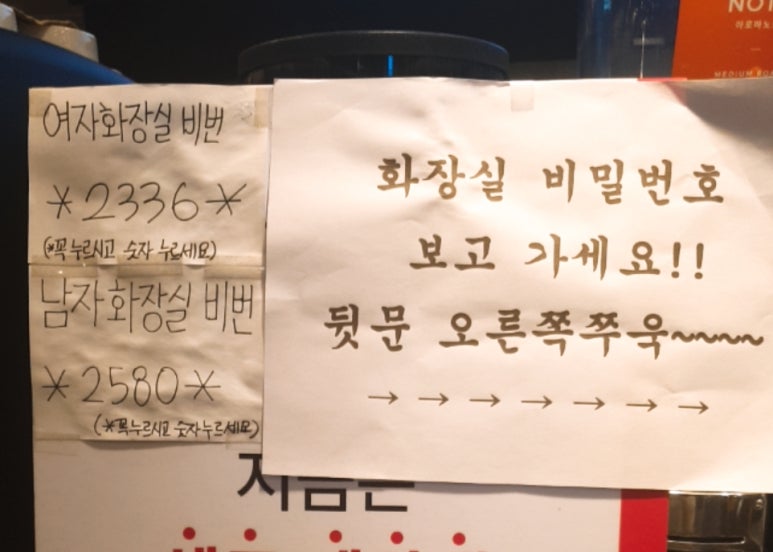 여자화장실 비번
*2336*
(*꼭 누르시고 숫자 누르세요)
남자화장실 비번
*2580*
(*꼭 누르시고 숫자 누르세요)
화장실 비밀번호
보고 가세요!!
뒷문 오른쪽쭈욱~~~~~
→ → → → → → →
NOT
아로마노
MEDIUM
지금은